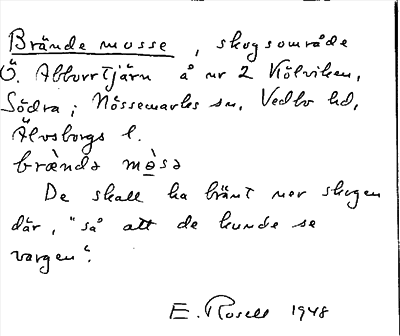 Brände mosse, skogsområde
Ö. Abborrtjärn å nr 2 Kölviken,
Södra; Nössemarks sn, Vedbo hd,
Älvsborgs l.
brændə mɷsə
De skall ha bränt ner skogen
där, "så att de kunde se
vargen".
E. Rosell 1948